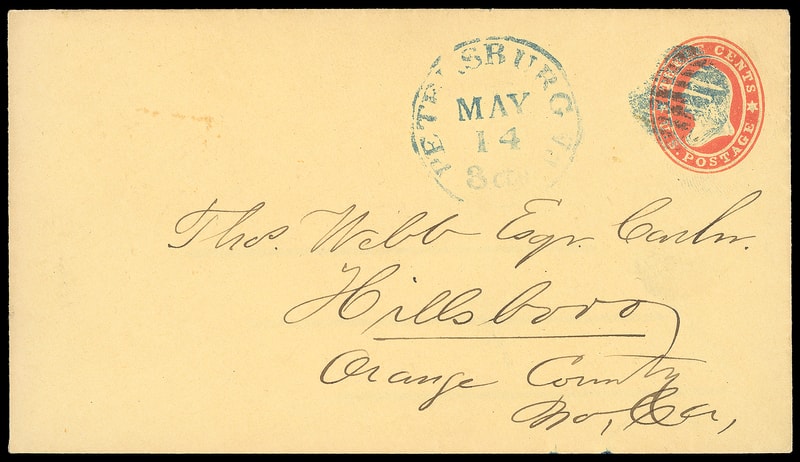 PETERSBURG Va.
MAY
14
3 cts
THREE CENTS
U.S. POSTAGE
Thos. Webb Esqr. Cashr.
Hillsboro
Orange County
No, Ca,